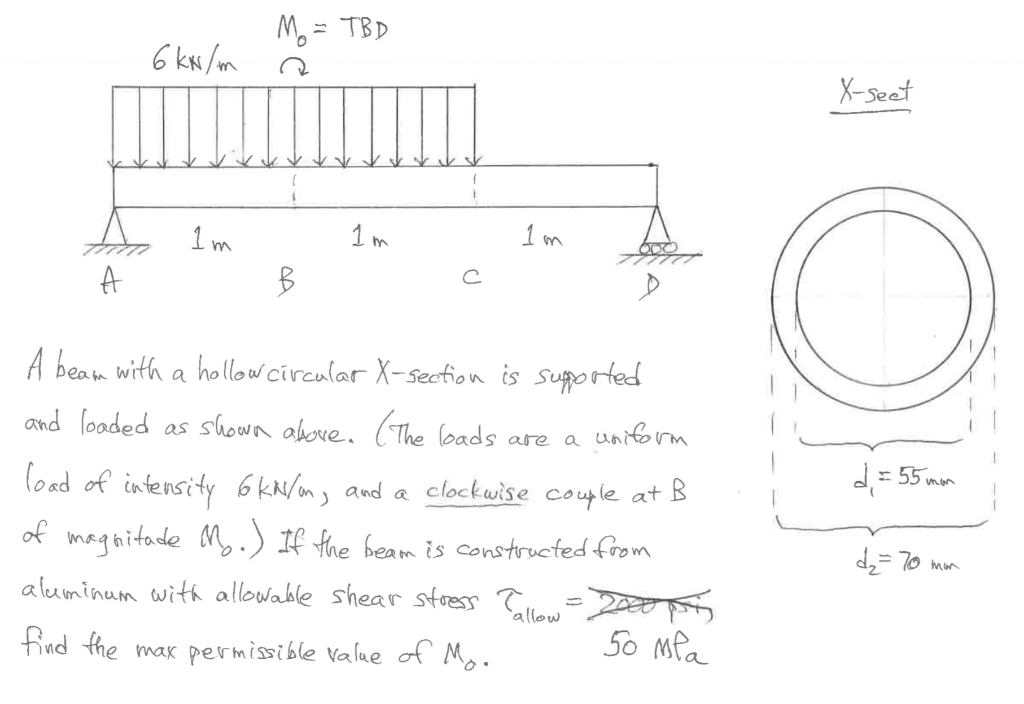 M₀ = TBD
6 kN/m
X-sect
1 m
1 m
1 m
A
B
C
D
d₁ = 55 mm
d₂ = 70 mm
A beam with a hollow circular X-section is supported
and loaded as shown above. (The loads are a uniform
load of intensity 6 kN/m, and a clockwise couple at B
of magnitude M₀.) If the beam is constructed from
aluminum with allowable shear stress τallow = 2000 psi,
50 MPa
find the max permissible value of M₀.